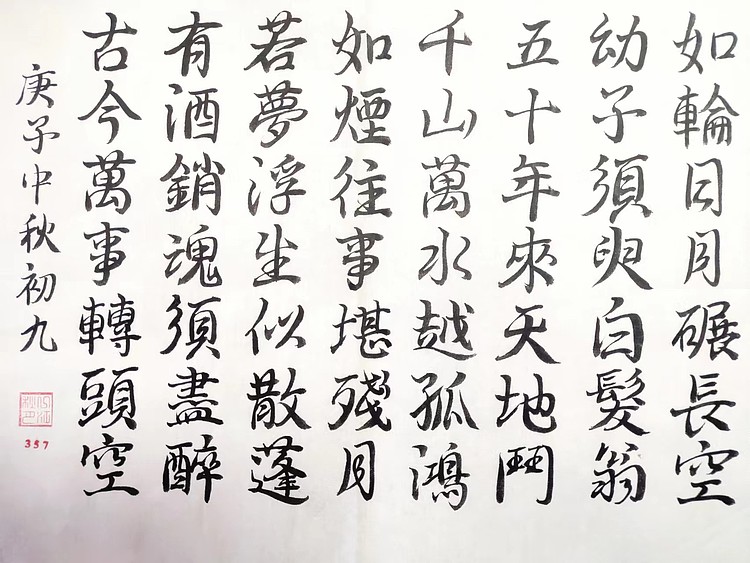 如輪日月碾長空
幼子須臾白髮翁
五十年來天地鬥
千山萬水越孤鴻
如煙往事堪殘月
若夢浮生似散蓬
有酒銷魂須盡醉
古今萬事轉頭空
庚子中秋初九
357